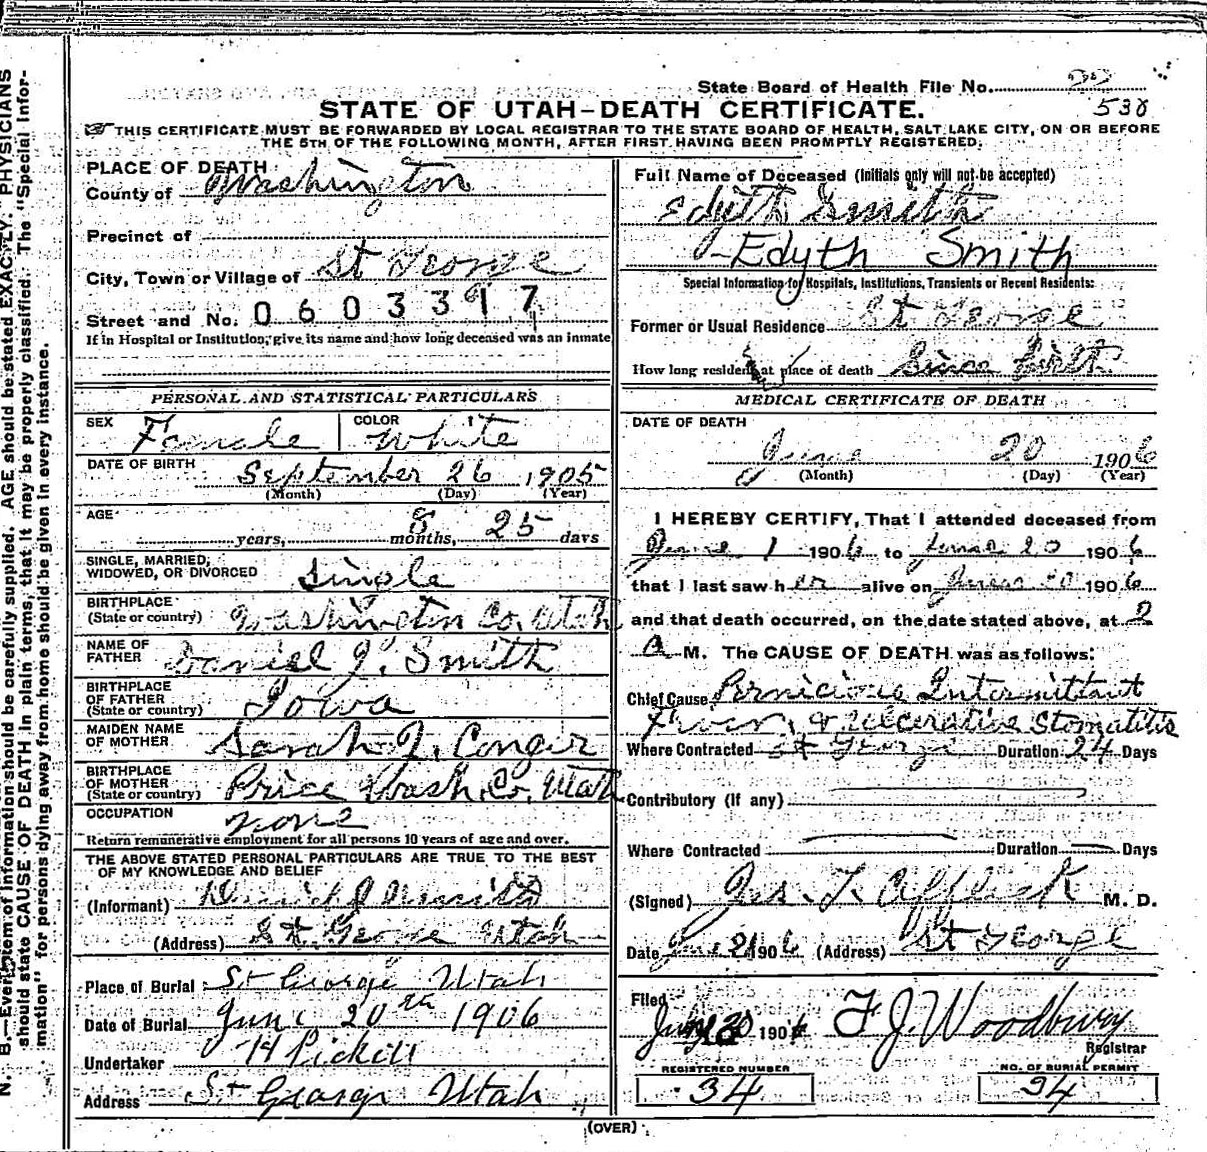 State Board of Health File No.
538
STATE OF UTAH—DEATH CERTIFICATE.
THIS CERTIFICATE MUST BE FORWARDED BY LOCAL REGISTRAR TO THE STATE BOARD OF HEALTH, SALT LAKE CITY, ON OR BEFORE
THE 5TH OF THE FOLLOWING MONTH, AFTER FIRST HAVING BEEN PROMPTLY REGISTERED.
PLACE OF DEATH
County of Washington
Precinct of
City, Town or Village of St George
Street and No. 0603397
If in Hospital or Institution, give its name and how long deceased was an inmate
PERSONAL AND STATISTICAL PARTICULARS
SEX Female COLOR White
DATE OF BIRTH September 26 1905
(Month) (Day) (Year)
AGE years, 8 months, 25 days
SINGLE, MARRIED,
WIDOWED, OR DIVORCED Single
BIRTHPLACE
(State or country) Washington Co. Utah
NAME OF
FATHER Daniel J. Smith
BIRTHPLACE
OF FATHER
(State or country) Iowa
MAIDEN NAME
OF MOTHER Sarah J. Conger
BIRTHPLACE
OF MOTHER
(State or country) Price Wash. Co. Utah
OCCUPATION None
Return remunerative employment for all persons 10 years of age and over.
THE ABOVE STATED PERSONAL PARTICULARS ARE TRUE TO THE BEST
OF MY KNOWLEDGE AND BELIEF
(Informant) Daniel J Smith
(Address) St. George Utah
Place of Burial St George Utah
Date of Burial June 20th 1906
Undertaker H Pickett
Address St George Utah
Full Name of Deceased (Initials only will not be accepted)
Edyth Smith
Edyth Smith
Special Information for Hospitals, Institutions, Transients or Recent Residents:
Former or Usual Residence St George
How long resident at place of death Since birth
MEDICAL CERTIFICATE OF DEATH
DATE OF DEATH
June 20 1906
(Month) (Day) (Year)
I HEREBY CERTIFY, That I attended deceased from
June 1 1906 to June 20 1906
that I last saw her alive on June 20 1906
and that death occurred, on the date stated above, at 2
A M. The CAUSE OF DEATH was as follows:
Chief Cause Pernicious Intermittant
Fever, & Ulcerative Stomatitis
Where Contracted St George Duration 24 Days
Contributory (If any)
Where Contracted Duration Days
(Signed) Jas. T. Affleck M. D.
Date June 21 1906 (Address) St George
Filed
July 1906 F J. Woodbury
Registrar
REGISTERED NUMBER
34
NO. OF BURIAL PERMIT
34
(OVER)
N. B.—Every item of information should be carefully supplied. AGE should be stated EXACTLY. PHYSICIANS
should state CAUSE OF DEATH in plain terms, that it may be properly classified. The "Special Infor-
mation" for persons dying away from home should be given in every instance.